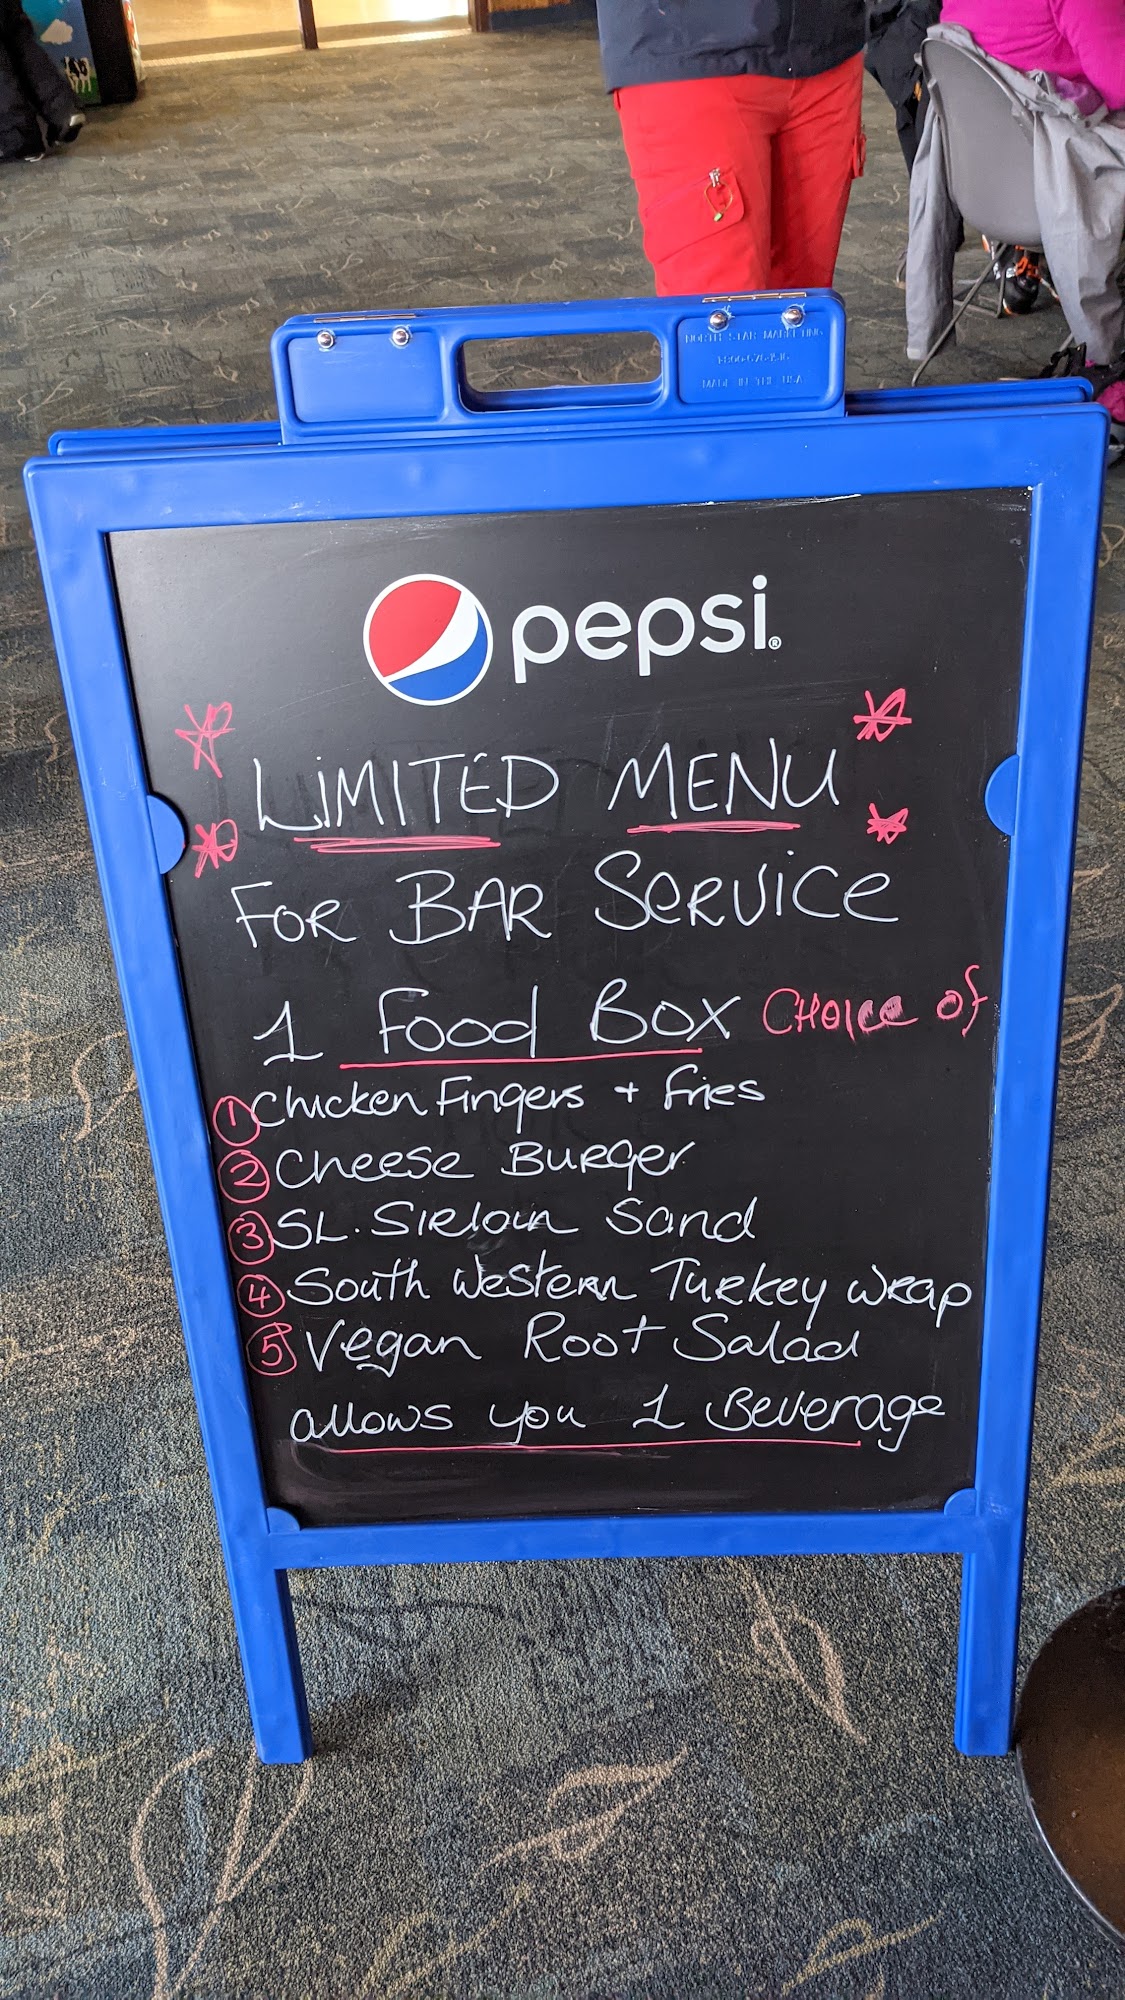 NORTH STAR MARKETING
MADE IN THE USA
pepsi®
LiMITED MENU
FOR BAR SeRViCe
1 Food Box CHOICE of
① Chicken Fingers + Fries
② Cheese BURGer
③ SL. SIRloin Sand
④ South Western TURKey WRap
⑤ Vegan Root Salad
allows you 1 Beverage